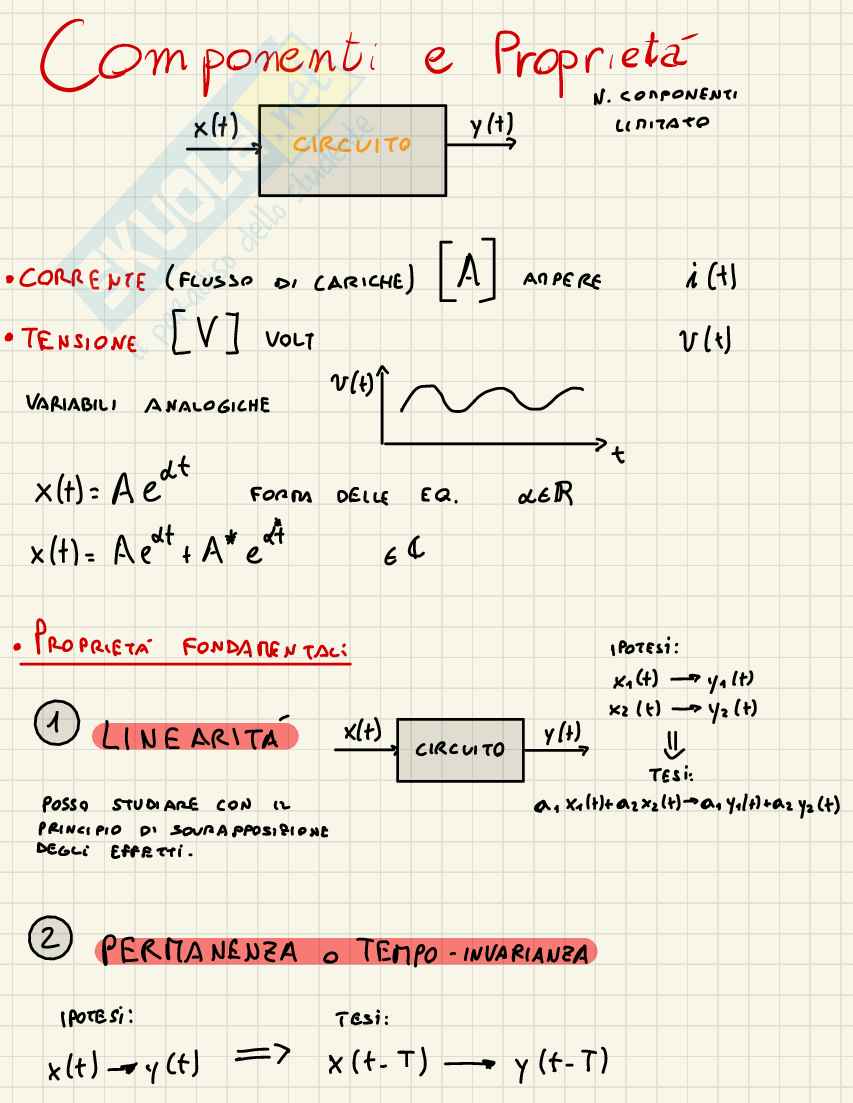 Componenti e Proprietá
N. COMPONENTI
LIMITATO
x(t) CIRCUITO y(t)
EKUOLA.net
il paradiso dello studente
• CORRENTE (FLUSSO DI CARICHE) [A] AMPERE i(t)
• TENSIONE [V] VOLT v(t)
VARIABILI ANALOGICHE v(t) t
x(t) = A e^αt FORMA DELLE EQ. α∈ℝ
x(t) = A e^αt + A* e^α*t ∈ ℂ
• PROPRIETÁ FONDAMENTALi
iPOTESi:
x₁(t) → y₁(t)
x₂(t) → y₂(t)
⇓
TESi:
a₁x₁(t)+a₂x₂(t)→a₁y₁(t)+a₂y₂(t)
1 LINEARITÁ x(t) CIRCUITO y(t)
POSSO STUDIARE CON IL
PRINCIPIO DI SOVRAPPOSIZIONE
DEGLi EFFETTi.
2 PERMANENZA o TEMPO-INVARIANZA
IPOTESi: TESi:
x(t) → y(t) ⇒ x(t-T) → y(t-T)